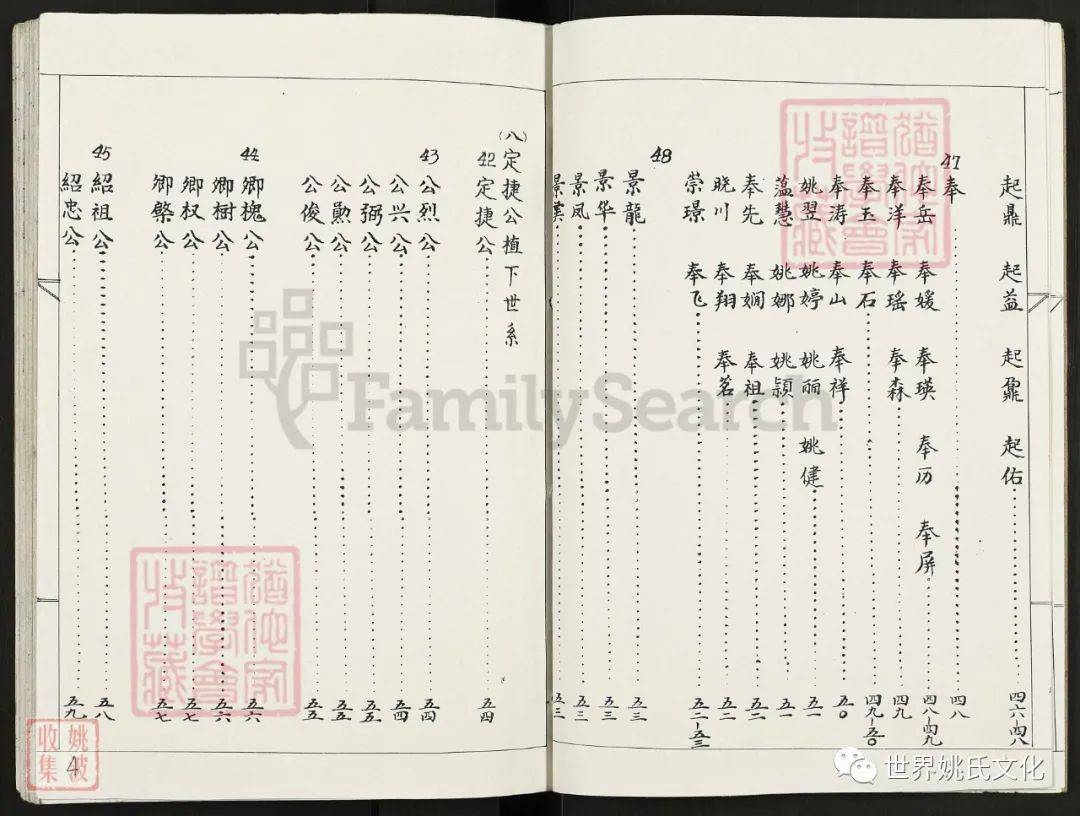 起鼎 起益 起鼐 起佑 四六-四八
47 奉 四八
奉岳 奉媛 奉瑛 奉历 奉屏 四八-四九
奉洋 奉瑶 奉森 四九
奉玉 奉石 四九-五0
奉涛 奉山 奉祥 五0
姚翌 姚婷 姚丽 姚健 五一
蕴慧 姚娜 姚颖 五一
奉先 奉娴 奉祖 五二
晓川 奉翔 奉茗 五二
崇璟 奉飞 五二-五三
48 景龍 五三
景华 五三
景凤 五三
景云 五三
(八)定捷公植下世系
42 定捷公 五四
43 公烈公 五四
公兴公 五四
公弼公 五五
公勲公 五五
公俊公 五五
44 卿槐公 五六
卿樹公 五六
卿权公 五七
卿榮公 五七
45 紹祖公 五八
紹忠公 五九
4
姚波收集
FamilySearch
世界姚氏文化